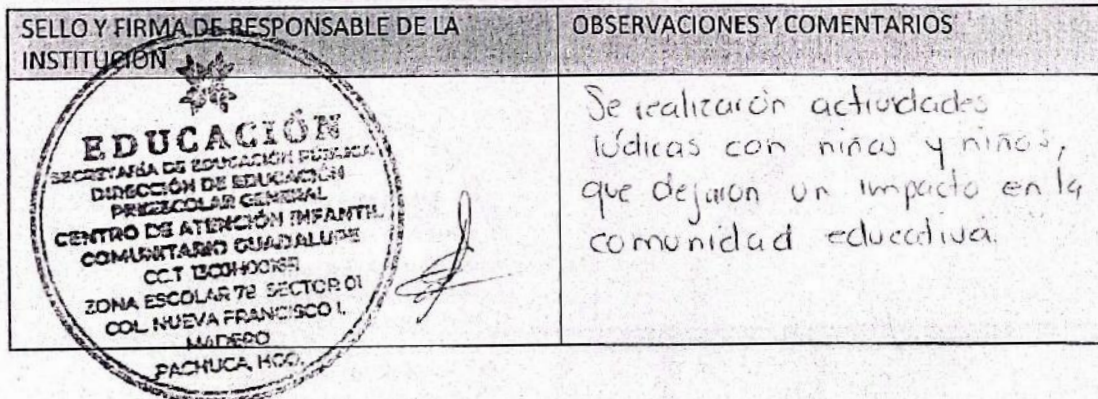 SELLO Y FIRMA DE RESPONSABLE DE LA
INSTITUCIÓN
OBSERVACIONES Y COMENTARIOS
EDUCACIÓN
SECRETARÍA DE EDUCACIÓN PÚBLICA
DIRECCIÓN DE EDUCACIÓN
PREESCOLAR GENERAL
CENTRO DE ATENCIÓN INFANTIL
COMUNITARIO GUADALUPE
C.C.T
ZONA ESCOLAR 78 SECTOR 01
COL. NUEVA FRANCISCO I.
MADERO
PACHUCA, HGO.
Se realizarón actividades
lúdicas con niñas y niños,
que dejaron un impacto en la
comunidad educativa.